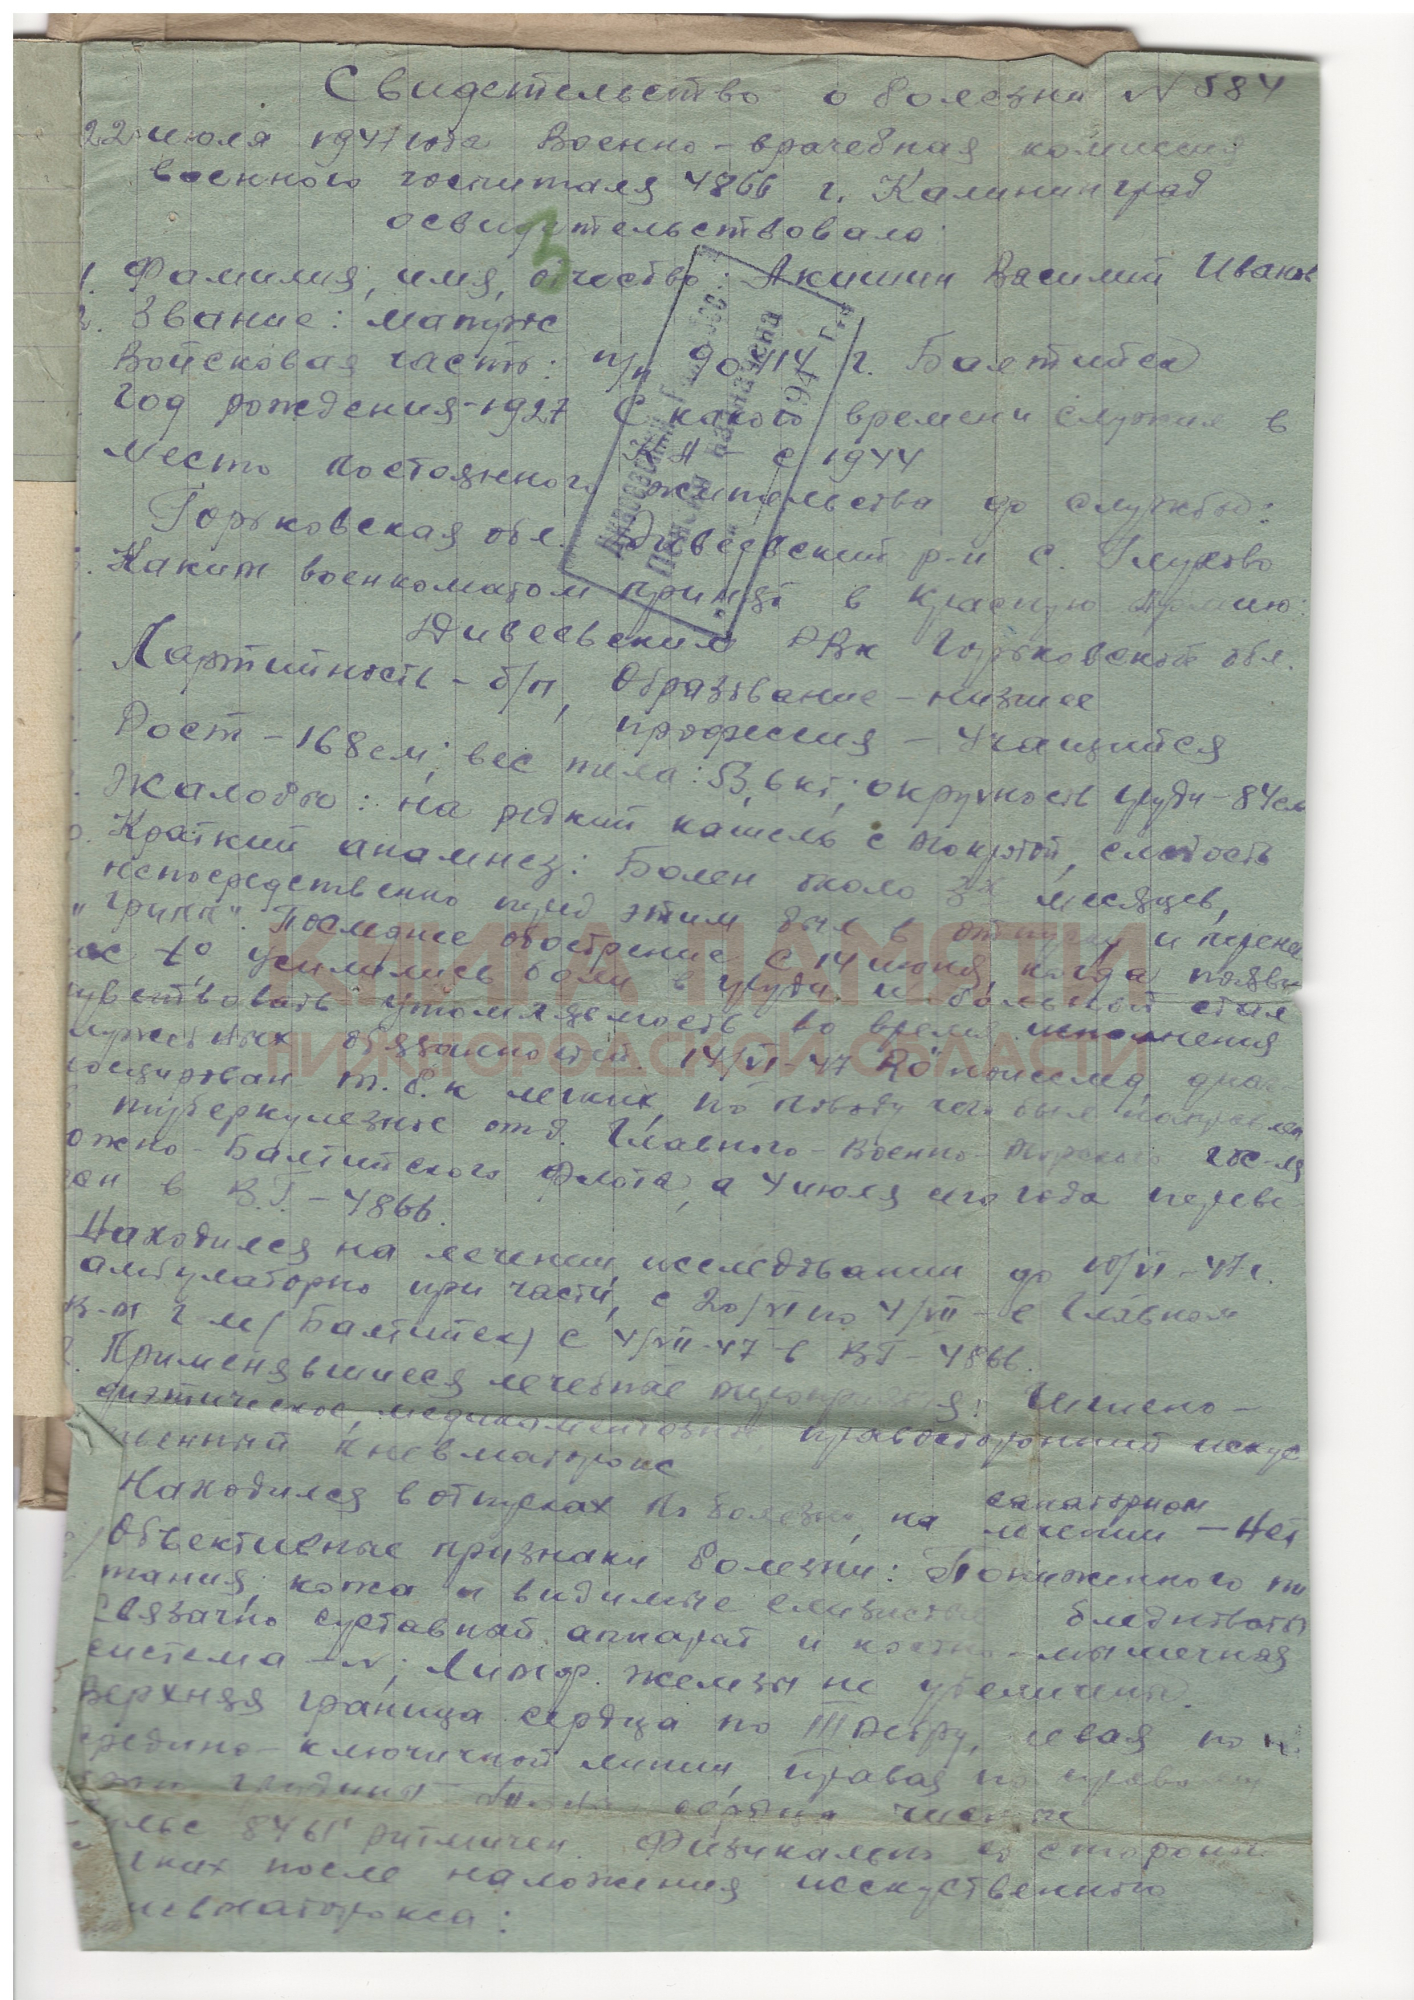 Свидетельство о болезни N 584
22 июля 1947 года Военно-врачебная комиссия
военного госпиталя 4866 г. Калининград
освидетельствовала
1. Фамилия, имя, отчество: Акишин Василий Иванов
2. Звание: матрос
Войсковая часть: п/п 90414 г. Балтийск
Год рождения-1927 С какого времени служил в
КА с 1944
Место постоянного жительства до службы:
Горьковская обл. Дивеевский р-н с. Глухово
Каким военкоматом принят в Красную Армию:
Дивеевским РВк Горьковской обл.
Партийность - б/п, Образование - низшее
профессия - Учащийся
Рост - 168 см; вес тела: 53,6 кг; окружность груди - 84 см
Жалобы: на редкий кашель с мокротой, слабость
Краткий анамнез: Болен около 3х месяцев,
непосредственно перед этим был в отпуску и перенес
"Грипп". Последнее обострение с 14 июня, когда появи
ась t° усилились боли в груди и больной стал
увствовать утомляемость во время исполнения
лужебных обязанностей. 14/VI 47 Ro исслед. диаг-
ностирован т.б.к легких, по поводу чего был направлен
в туберкулезное отд. Главного-Военно-Морского гос-ля
южно-Балтийского Флота, а 4 июля сего года переве-
ен в В.Г. - 4866.
Находился на лечении, исследовании до 10/VI-47г.
амбулаторно при части, с 20/VI по 4/VII - в Главном
В-М Г-м (Балтийск) с 4/VII-47-в ВГ-4866.
Применявшиеся лечебные мероприятия: Гигиено-
диэтическое, медикаментозн. правосторонний искус
венный пневмоторокс
Находился в отпусках по болезни, на санаторном
лечении - Нет
Объективные признаки болезни: Пониженного пи
тания, кожа и видимые слизистые бледноваты
Связачно суставной аппарат и костно-мышечная
система - N; Лимф. железы не увеличены.
Верхняя граница сердца по III ребру, левая по
средино-ключичной линии, правая по право
грудины сердца чистые
ульс 84 61' ритмичен. Физикально со стороны
гких после наложения исскуственного
невматорокса:
Пенсия назначена
194 г.
КНИГА ПАМЯТИ
НИЖЕГОРОДСКОЙ ОБЛАСТИ